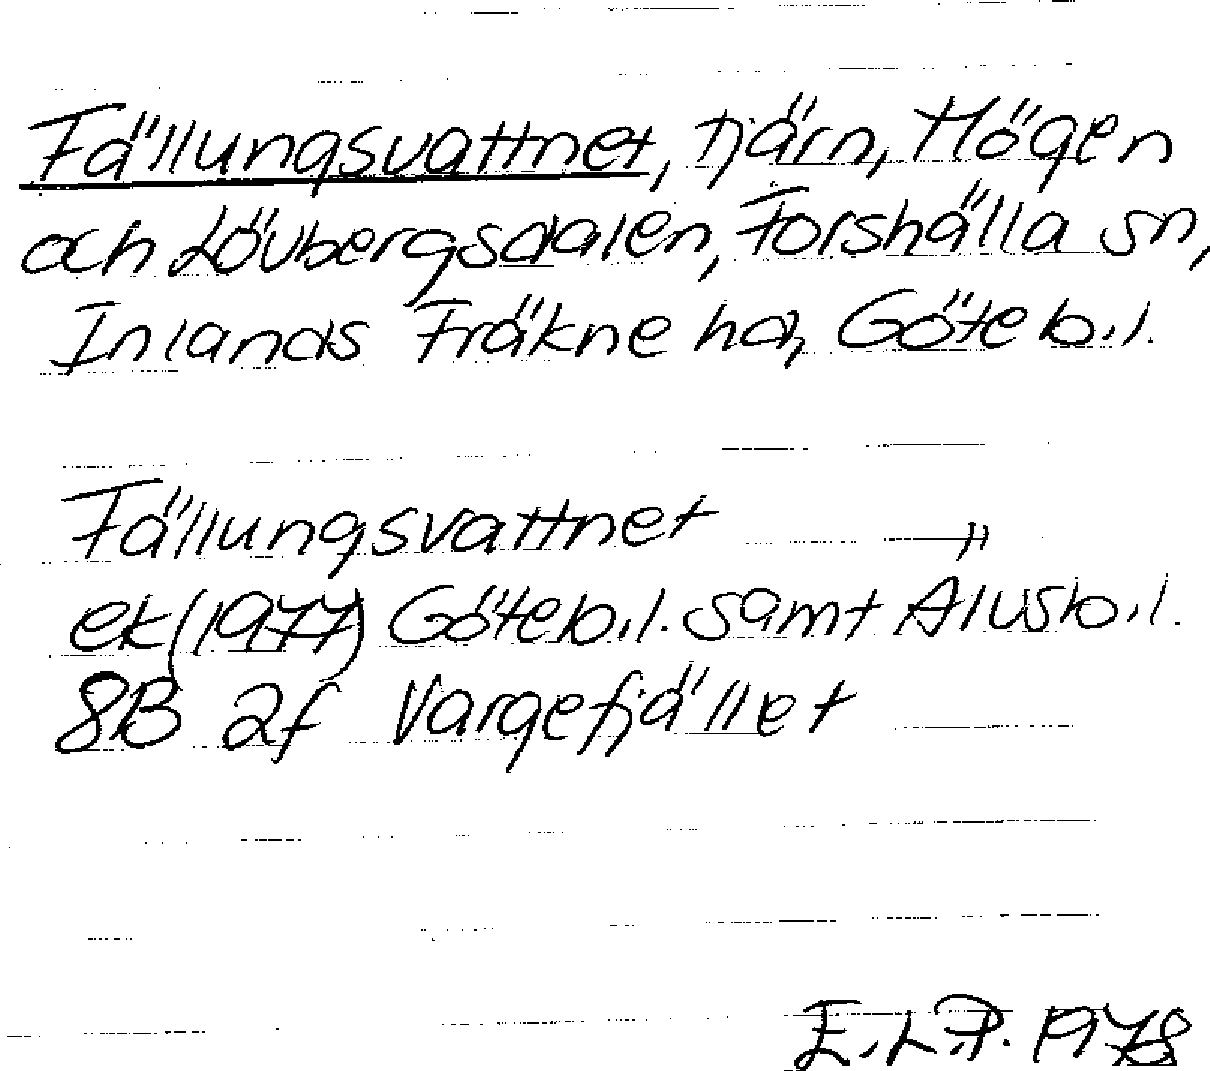 Fällungsvattnet, tjärn, Högen
och Lövbergsdalen, Forshälla sn,
Inlands Fräkne hd, Göteb.l.
Fällungsvattnet —"
ek(1977) Göteb.l. samt Älvsb.l.
8B 2f Vargefjället
E.L.P. 1978